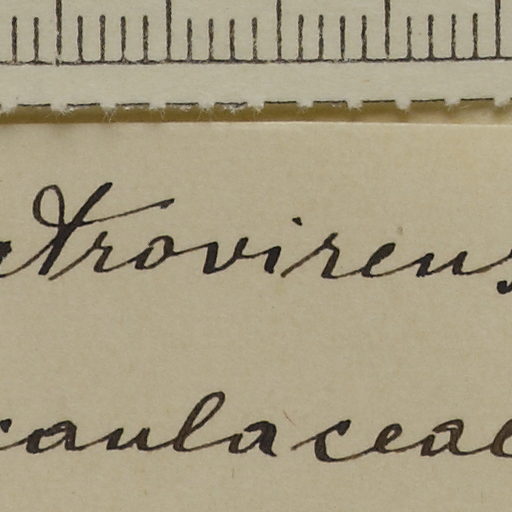 atrovirens
caulaceae